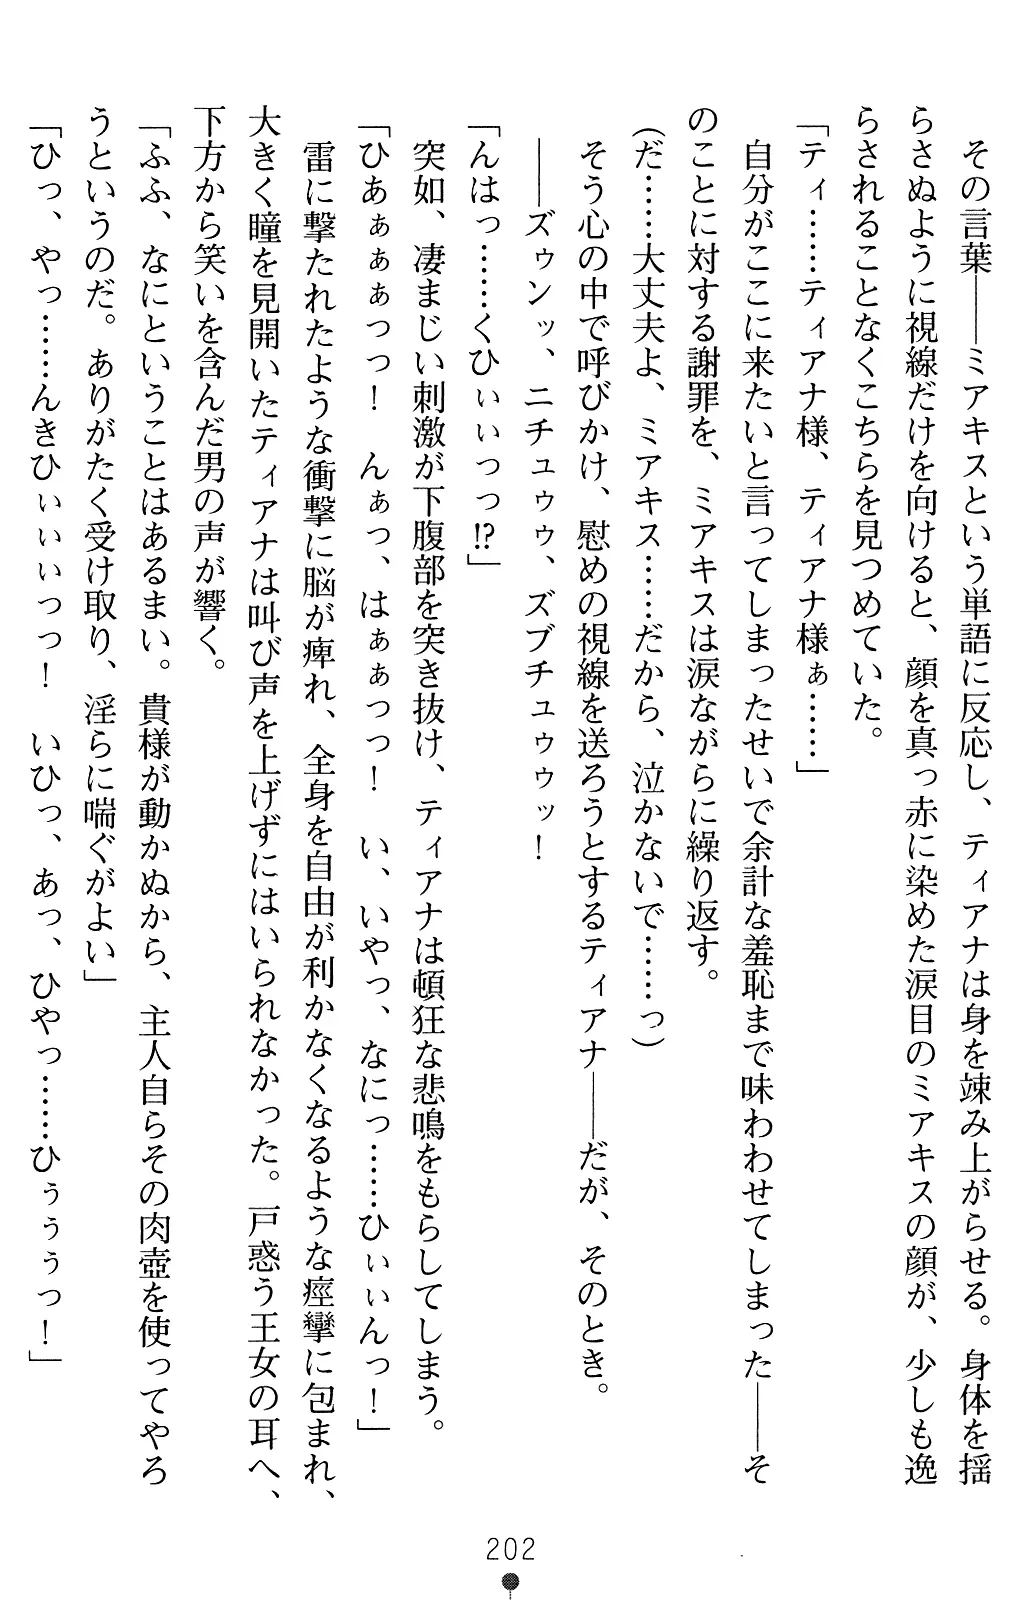 その言葉――ミアキスという単語に反応し、ティアナは身を竦み上がらせる。身体を揺
らさぬように視線だけを向けると、顔を真っ赤に染めた涙目のミアキスの顔が、少しも逸
らされることなくこちらを見つめていた。
「ティ……ティアナ様、ティアナ様ぁ……」
自分がここに来たいと言ってしまったせいで余計な羞恥まで味わわせてしまった――そ
のことに対する謝罪を、ミアキスは涙ながらに繰り返す。
(だ……大丈夫よ、ミアキス……だから、泣かないで……っ)
そう心の中で呼びかけ、慰めの視線を送ろうとするティアナ――だが、そのとき。
――ズゥンッ、ニチュゥゥ、ズブチュゥゥッ！
「んはっ……くひぃぃっっ⁉」
突如、凄まじい刺激が下腹部を突き抜け、ティアナは頓狂な悲鳴をもらしてしまう。
「ひあぁぁぁっっ！　んぁっ、はぁぁっっ！　い、いやっ、なにっ……ひぃぃんっ！」
雷に撃たれたような衝撃に脳が痺れ、全身を自由が利かなくなるような痙攣に包まれ、
大きく瞳を見開いたティアナは叫び声を上げずにはいられなかった。戸惑う王女の耳へ、
下方から笑いを含んだ男の声が響く。
「ふふ、なにということはあるまい。貴様が動かぬから、主人自らその肉壺を使ってやろ
うというのだ。ありがたく受け取り、淫らに喘ぐがよい」
「ひっ、やっ……んきひぃぃぃっっ！　いひっ、あっ、ひやっ……ひぅぅぅっ！」
202